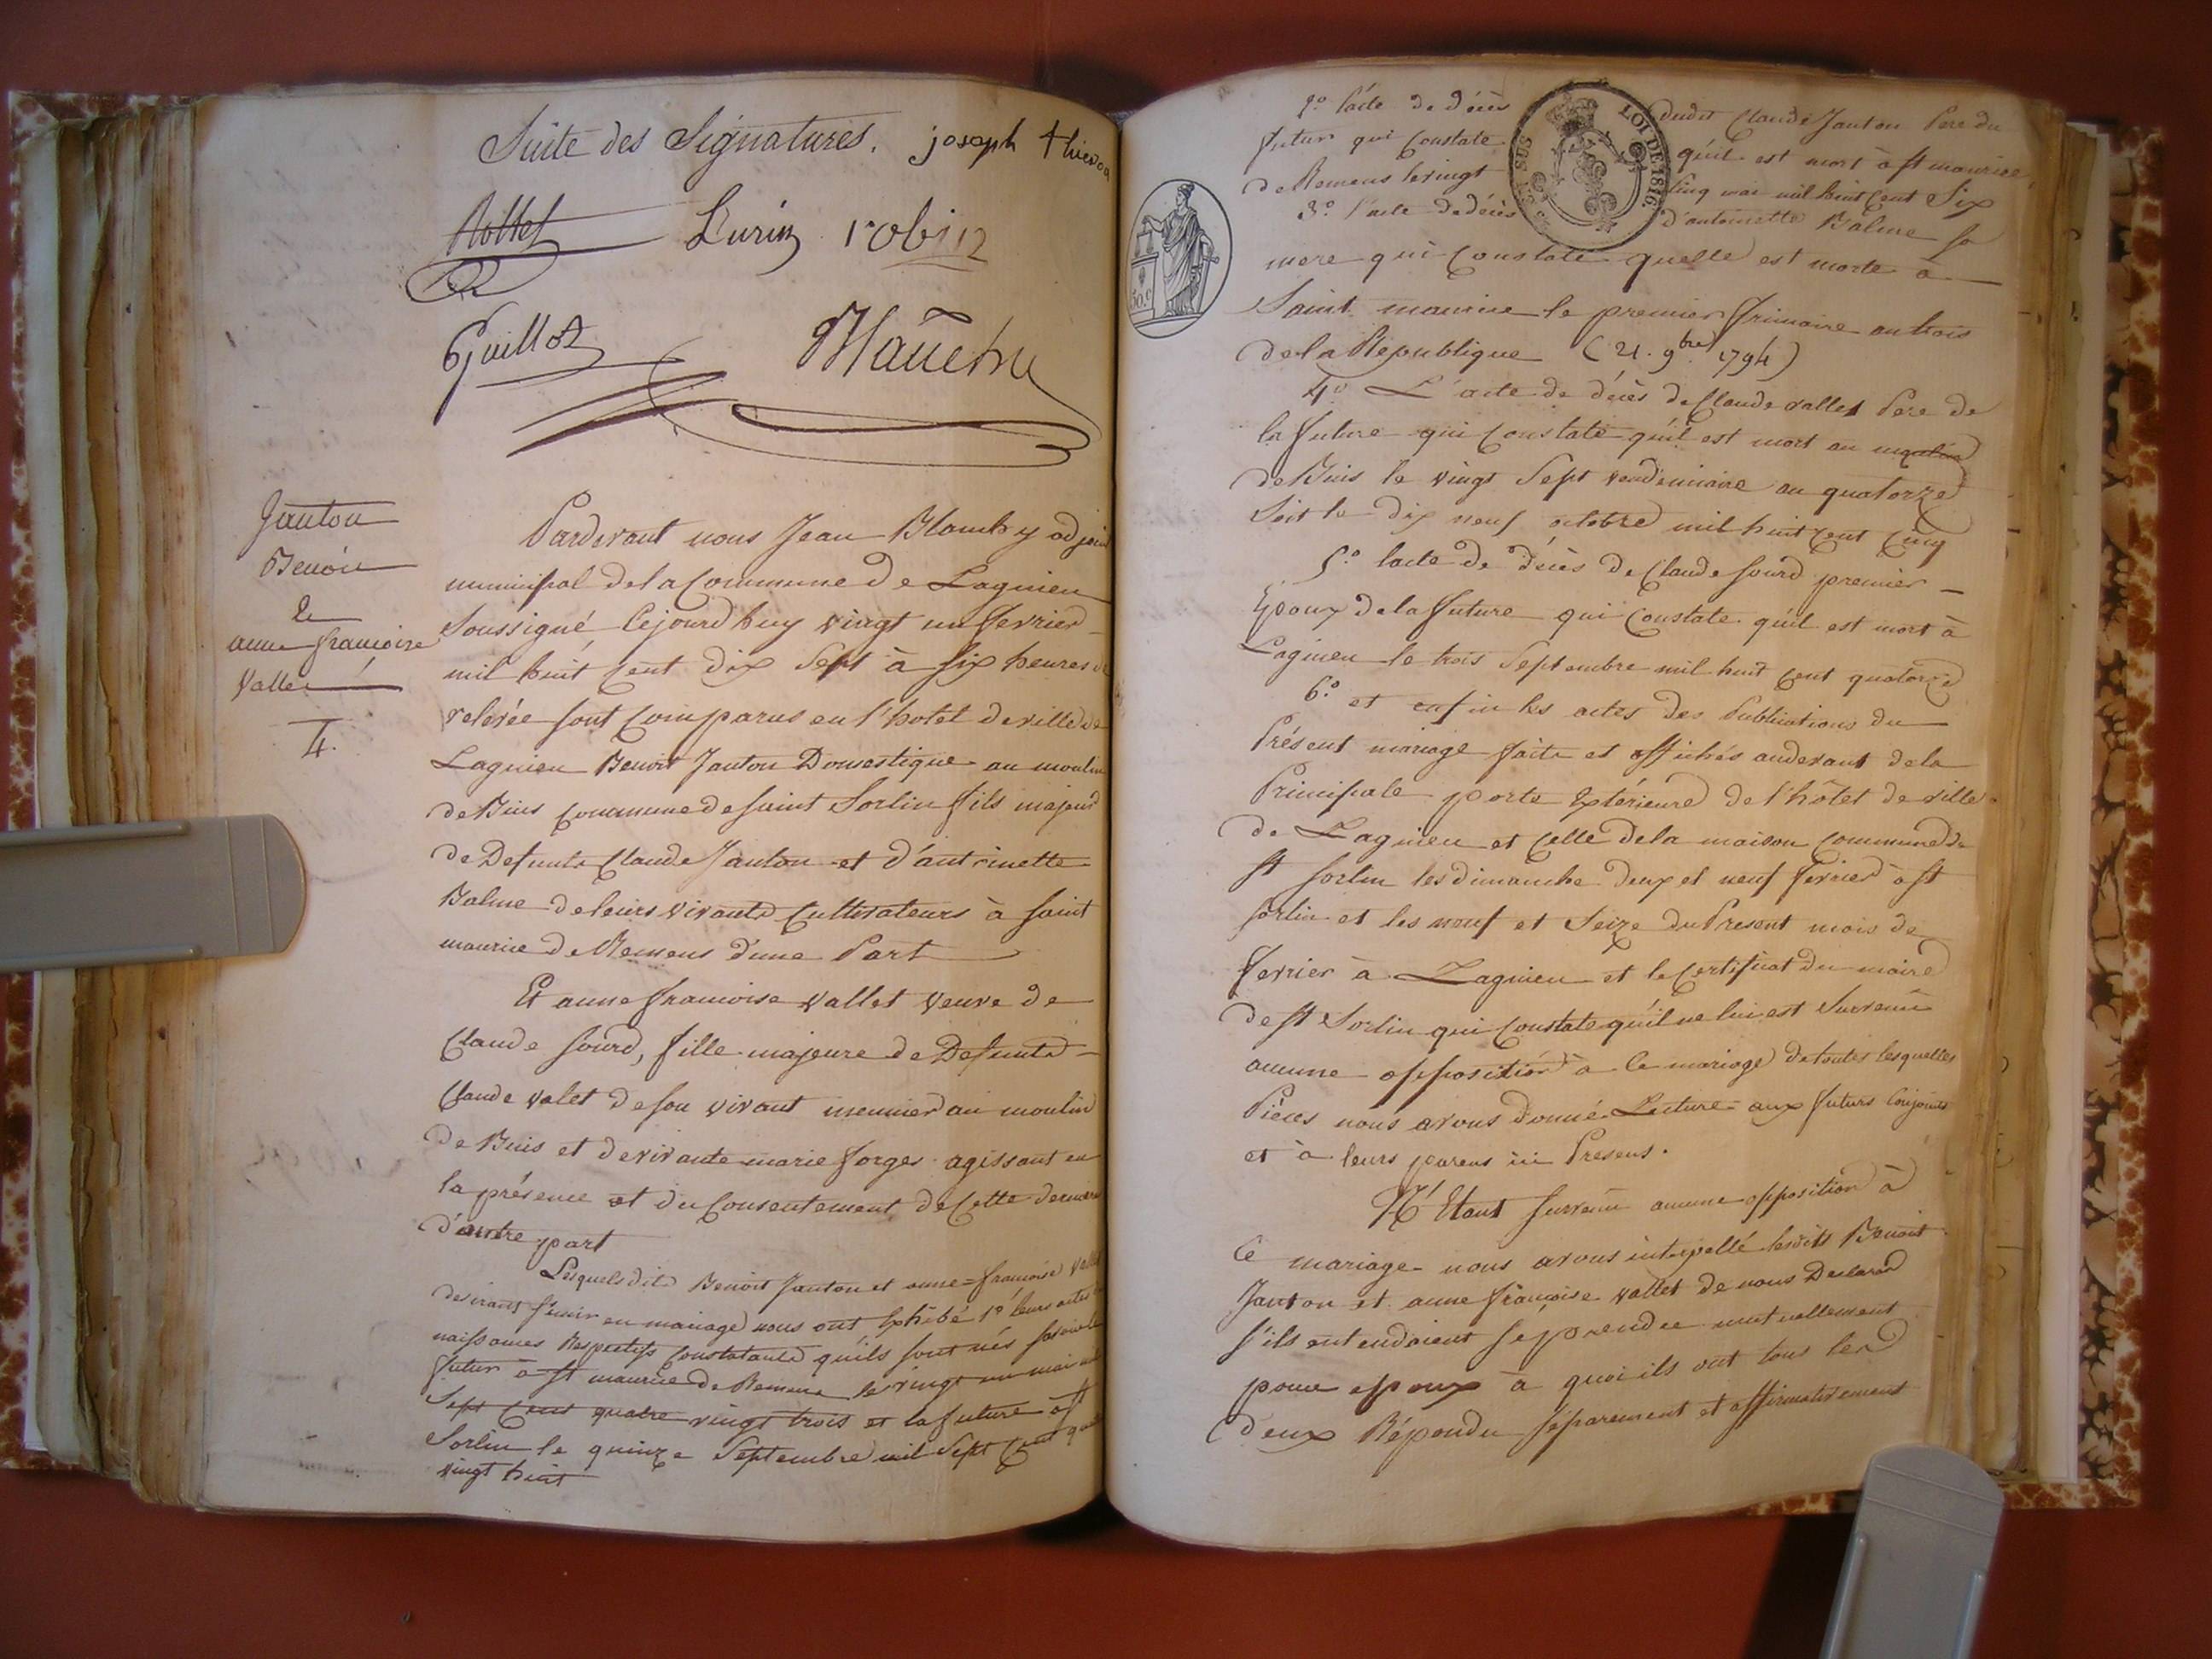 Suite des Signatures. joseph thievon
Lurin robin
Guillot Blanchy
Janton
Benoit
&
anne francoise
Vallet
4.
Pardevant nous Jean Blanchy adjoint
municipal de la Commune de Lagnieu
Soussigné Cejourd'huy vingt un fevrier
mil huit Cent dix Sept à six heures de
relevée sont Comparus en l'hotel de ville de
Lagnieu Benoit Janton Domestique au moulin
de Buis Commune de saint Sorlin fils majeur
de Defunts Claude Janton et d'antoinette
Balme de leurs vivants Cultivateurs à saint
maurice de Remens d'une Part
Et anne francoise Vallet Veuve de
Claude Sourd, fille majeure de Defunts
Claude Valet de son vivant meunier au moulin
de Buis et de vivante marie forges agissant en
la présence et du Consentement de Cette derniere
d'autre part
Lesquels dits Benoit Janton et anne francoise Vallet
desirant s'unir en mariage nous ont Exhibé 1º leurs actes de
naissances Respectifs Constatants qu'ils sont nés savoir le
futur à st maurice de Remens le vingt un mai mil
Sept Cent quatre vingt trois et la future à st
Sorlin le quinze Septembre mil Sept Cent quatre
vingt huit
2º l'acte de décès dudit Claude Janton Pere du
futur qui Constate qu'il est mort à st maurice
de Remens le vingt Cinq mai mil huit Cent Six
SUS LOI DE 1816.
3º l'acte de décès d'antoinette Balme sa
50.c
mere qui Constate quelle est morte à
Saint maurice le premier frimaire an trois
de la Republique (21. 9bre 1794)
4º L'acte de décès de Claude vallet Pere de
la future qui Constate qu'il est mort au moulin
de Buis le vingt Sept vendemiaire an quatorze
Soit le dix neuf octobre mil huit Cent Cinq
5º lacte de décès de Claude sourd premier
Epoux de la future qui Constate qu'il est mort à
Lagnieu le trois Septembre mil huit Cent quatorze
6º et enfin les actes des Publications du
Présent mariage faite et affichés audevant de la
Principale porte Extérieure de l'hôtel de ville
de Lagnieu et Celle de la maison Commune de
st Sorlin les dimanche deux et neuf fevrier à st
Sorlin et les neuf et Seize du Present mois de
fevrier à Lagnieu et le Certificat du maire
de st Sorlin qui Constate qu'il ne lui est Survenu
aucune opposition à Ce mariage de toutes lesquelles
Pièces nous avons donné Lecture aux futurs Conjoints
et à leurs parens ici Presens.
N'Etant Survenu aucune opposition à
Ce mariage nous avons interpellé lesdits Benoit
Janton et anne françoise vallet de nous Declarer
s'ils entendoient se prendre mutuellement
pour epoux à quoi ils ont tous les
deux Répondu séparement et affirmativement